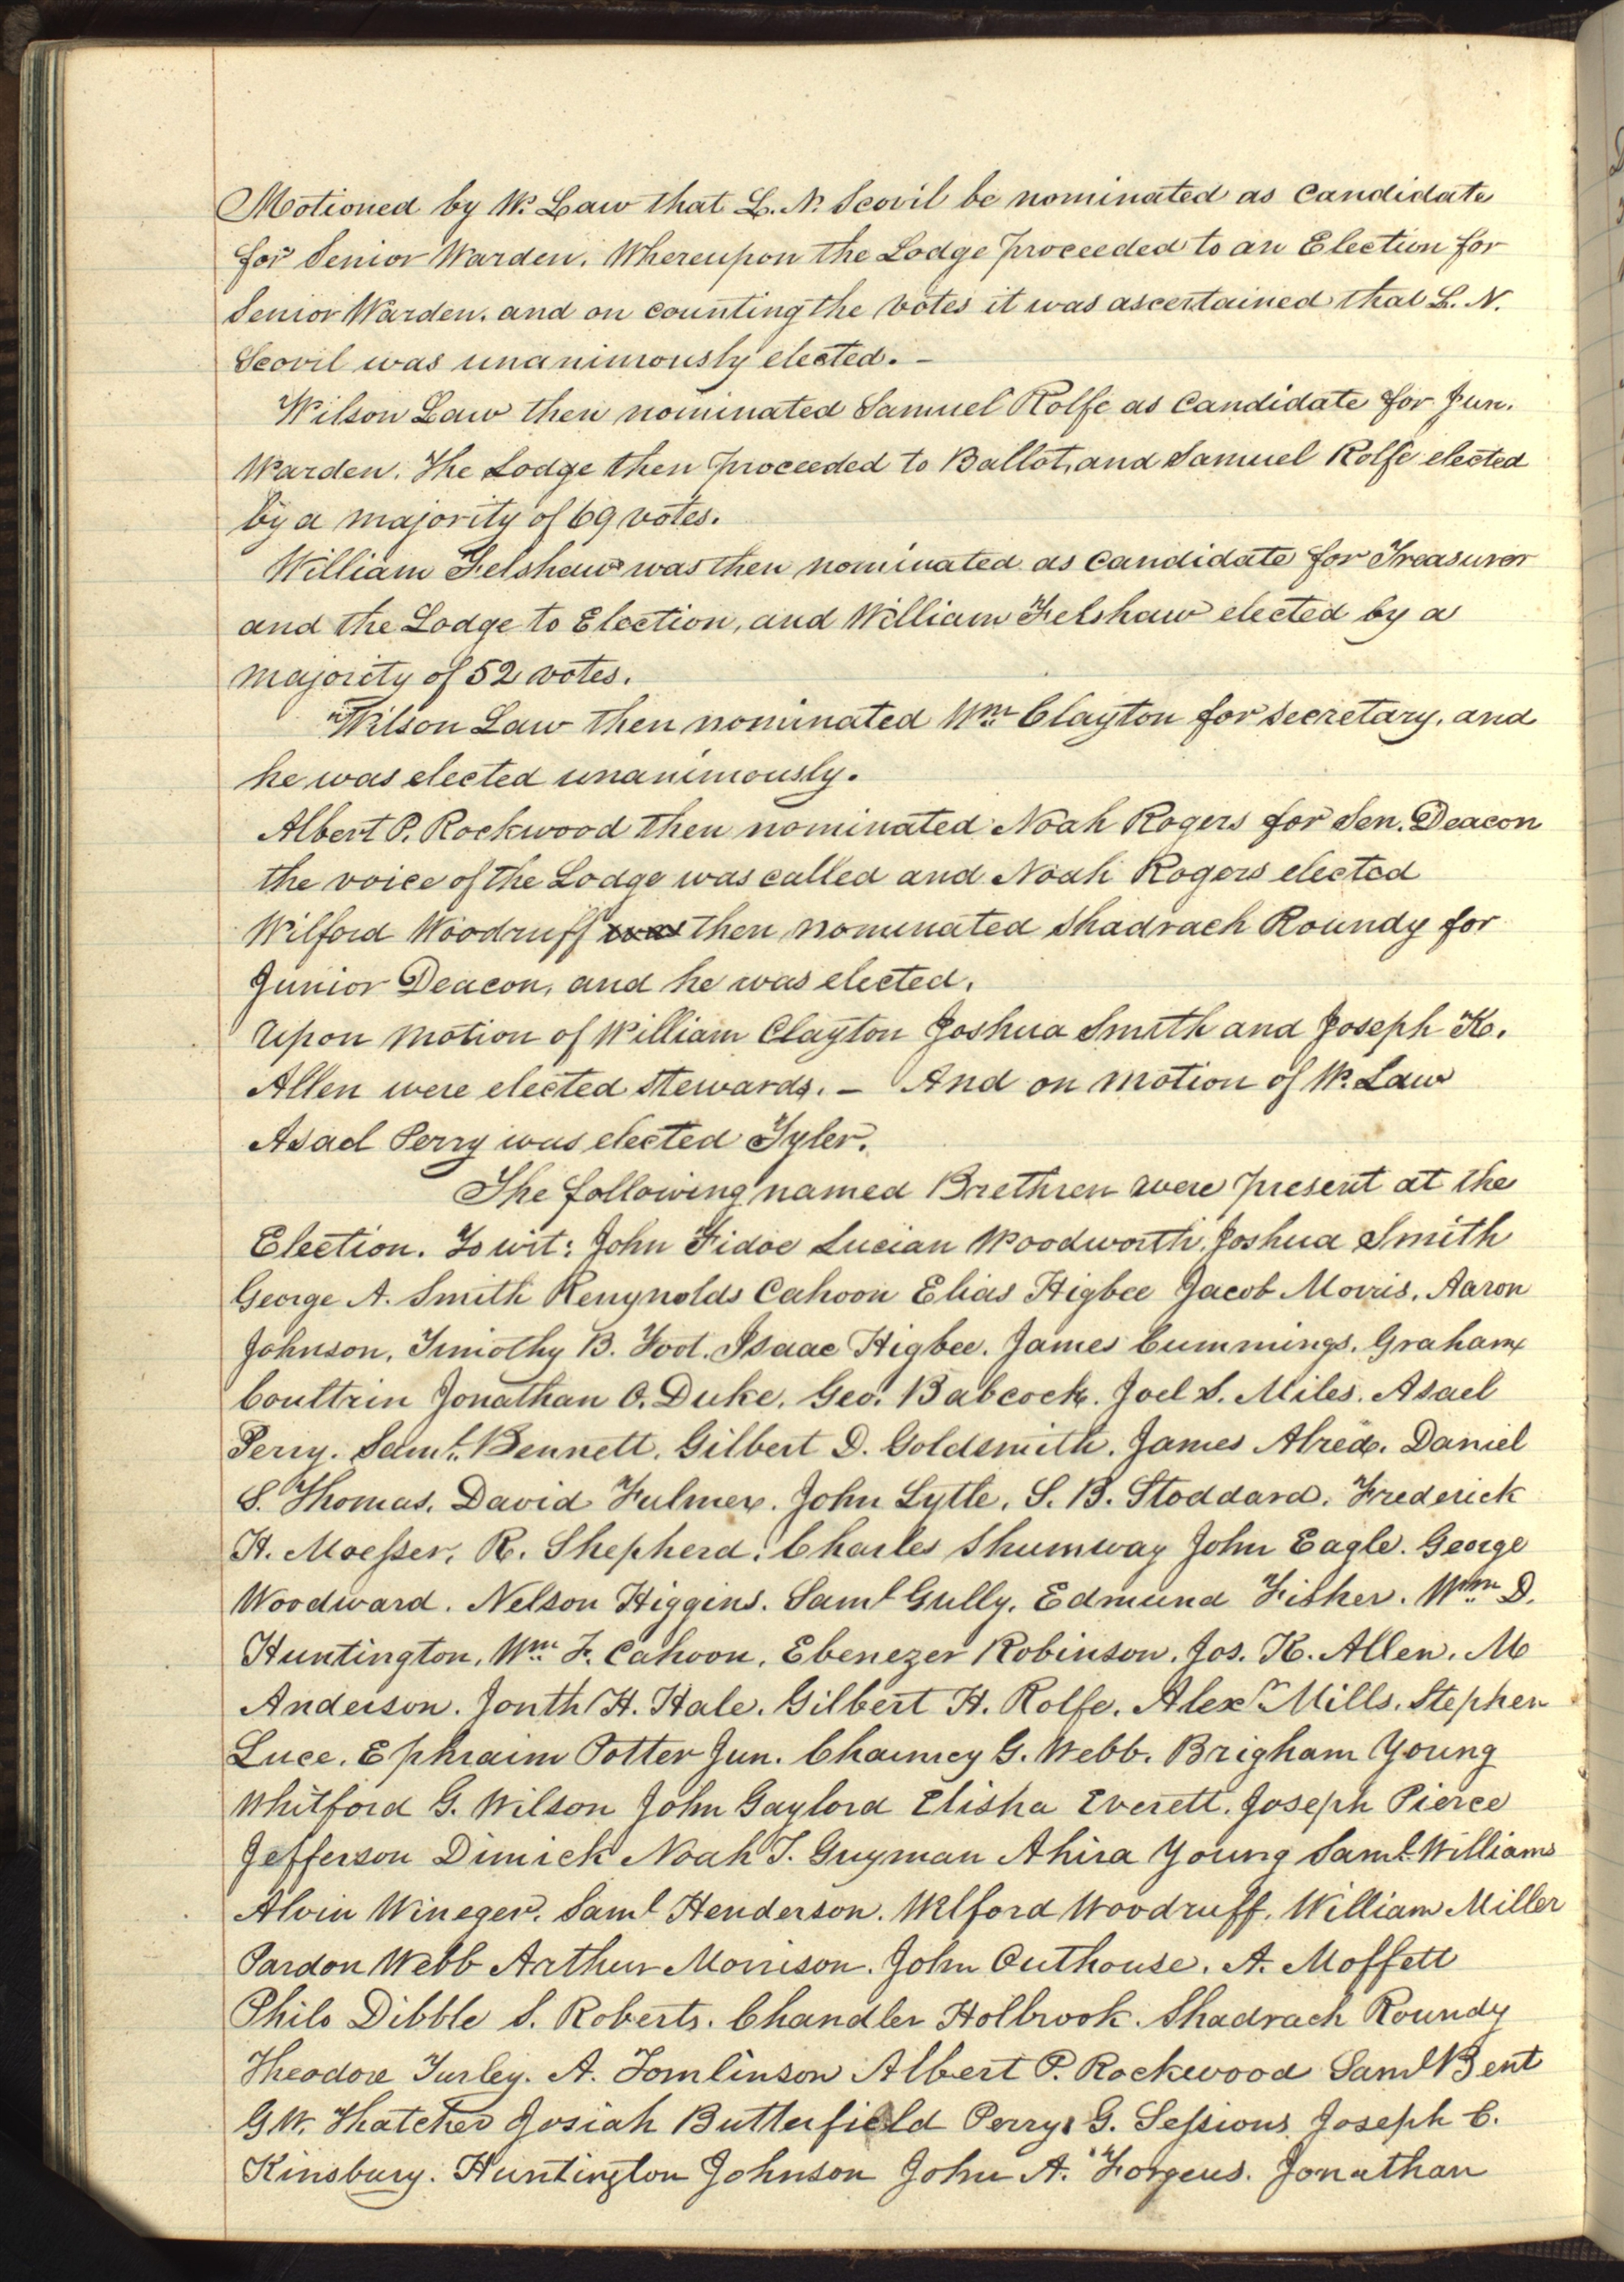 Motioned by W. Law that L. N. Scovil be nominated as Candidate
for Senior Warden. Whereupon the Lodge proceeded to an Election for
Senior Warden. and on counting the votes it was ascertained that L. N.
Scovil was unanimously elected. —
Wilson Law then nominated Samuel Rolfe as Candidate for Jun.
Warden. The Lodge then proceeded to Ballot, and Samuel Rolfe elected
by a majority of 69 votes.
William Felshaw was then nominated as Candidate for Treasurer
and the Lodge to Election, and William Felshaw elected by a
majority of 52 votes.
Wilson Law then nominated Wm Clayton for secretary, and
he was elected unanimously.
Albert P. Rockwood then nominated Noah Rogers for Sen. Deacon
the voice of the Lodge was called and Noah Rogers elected
Wilford Woodruff was then nominated Shadrach Roundy for
Junior Deacon, and he was elected.
Upon motion of William Clayton Joshua Smith and Joseph K.
Allen were elected stewards. — And on motion of W. Law
Asael Perry was elected Tyler.
The following named Brethren were present at the
Election. To wit: John Fidoe Lucian Woodworth. Joshua Smith
George A. Smith Renynolds Cahoon Elias Higbee Jacob Morris. Aaron
Johnson, Timothy B. Foot. Isaac Higbee. James Cummings. Graham
Coultrin Jonathan O. Duke. Geo. Babcock. Joel S. Miles. Asael
Perry. Saml. Bennett. Gilbert D. Goldsmith. James Alred. Daniel
S. Thomas. David Fulmer. John Lytle. S. B. Stoddard. Frederick
H. Moesser. R. Shepherd. Charles Shumway John Eagle. George
Woodward. Nelson Higgins. Saml Gully. Edmund Fisher. Wm D.
Huntington, Wm F. Cahoon. Ebenezer Robinson. Jos. K. Allen. M
Anderson. Jonth H. Hale. Gilbert H. Rolfe. Alexr Mills. Stephen
Luce. Ephraim Potter Jun. Chauncy G. Webb. Brigham Young
Whitford G. Wilson John Gaylord Elisha Everett. Joseph Pierce
Jefferson Dimick Noah T. Guyman Ahira Young Saml Williams
Alvin Wineger. Saml Henderson. Wilford Woodruff. William Miller
Pardon Webb Arthur Morrison. John Outhouse. A. Moffett
Philo Dibble S. Roberts. Chandler Holbrook. Shadrach Roundy
Theodore Turley. A. Tomlinson Albert P. Rockwood Saml Bent
G.W. Thatcher Josiah Butterfield Perry G. Sessions Joseph C.
Kinsbury. Huntington Johnson John A. Forgeus. Jonathan